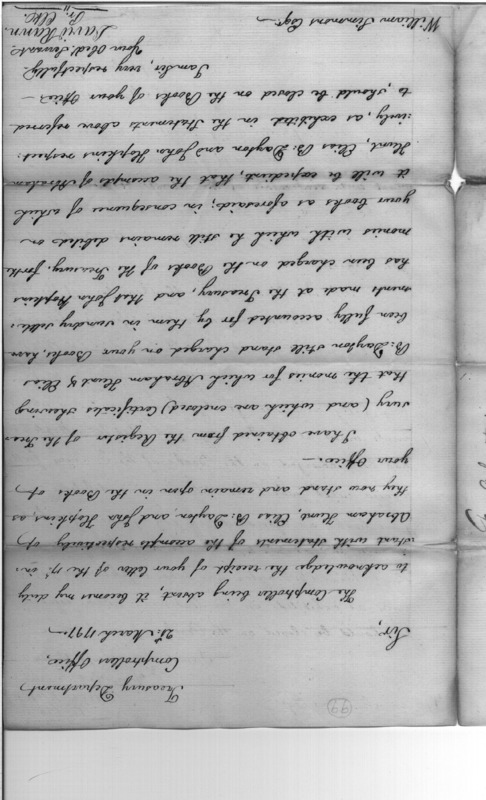 (99)
Treasury Department
Comptrollers Office,
21st March 1797.—
Sir,
The Comptroller being absent, it becomes my duty
to acknowledge the receipt of your letter of the 17th in:
stant with statements of the accompts respectively of
Abraham Hunt, Elias B: Dayton, and John Hopkins, as
they now stand and remain open in the Books of
your Office.—
I have obtained from the Register of the Trea:
sury (and which are enclosed) Certificates shewing
that the monies for which Abraham Hunt & Elias
B: Dayton still stand charged on your Books, have
been fully accounted for by them in sundry settle:
ments made at the Treasury, and that John Hopkins
has been charged on the Books of the Treasury for the
monies with which he still remains debited on
your books as aforesaid; in consequence of which
it will be expedient, that the accompts of Abraham
Hunt, Elias B: Dayton and John Hopkins respect:
ively, as exhibited in the Statements above referred
to, should be closed on the Books of your Office—
I am Sir, very respectfully
Your Obed: Servant
David Rawn
Pr: Clk:
William Simmons Esqr—